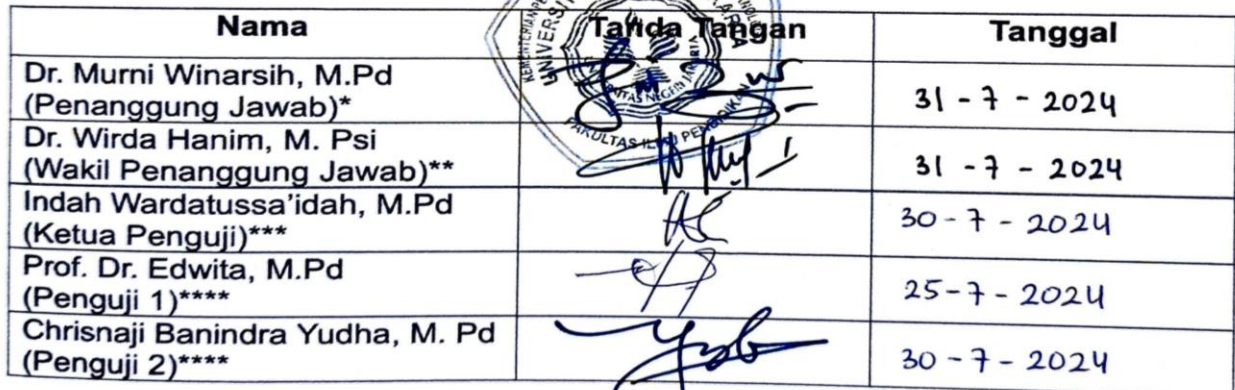 Nama Tanda Tangan Tanggal
Dr. Murni Winarsih, M.Pd
(Penanggung Jawab)* 31 - 7 - 2024
Dr. Wirda Hanim, M. Psi
(Wakil Penanggung Jawab)** 31 - 7 - 2024
Indah Wardatussa'idah, M.Pd
(Ketua Penguji)*** 30 - 7 - 2024
Prof. Dr. Edwita, M.Pd
(Penguji 1)**** 25 - 7 - 2024
Chrisnaji Banindra Yudha, M. Pd
(Penguji 2)**** 30 - 7 - 2024